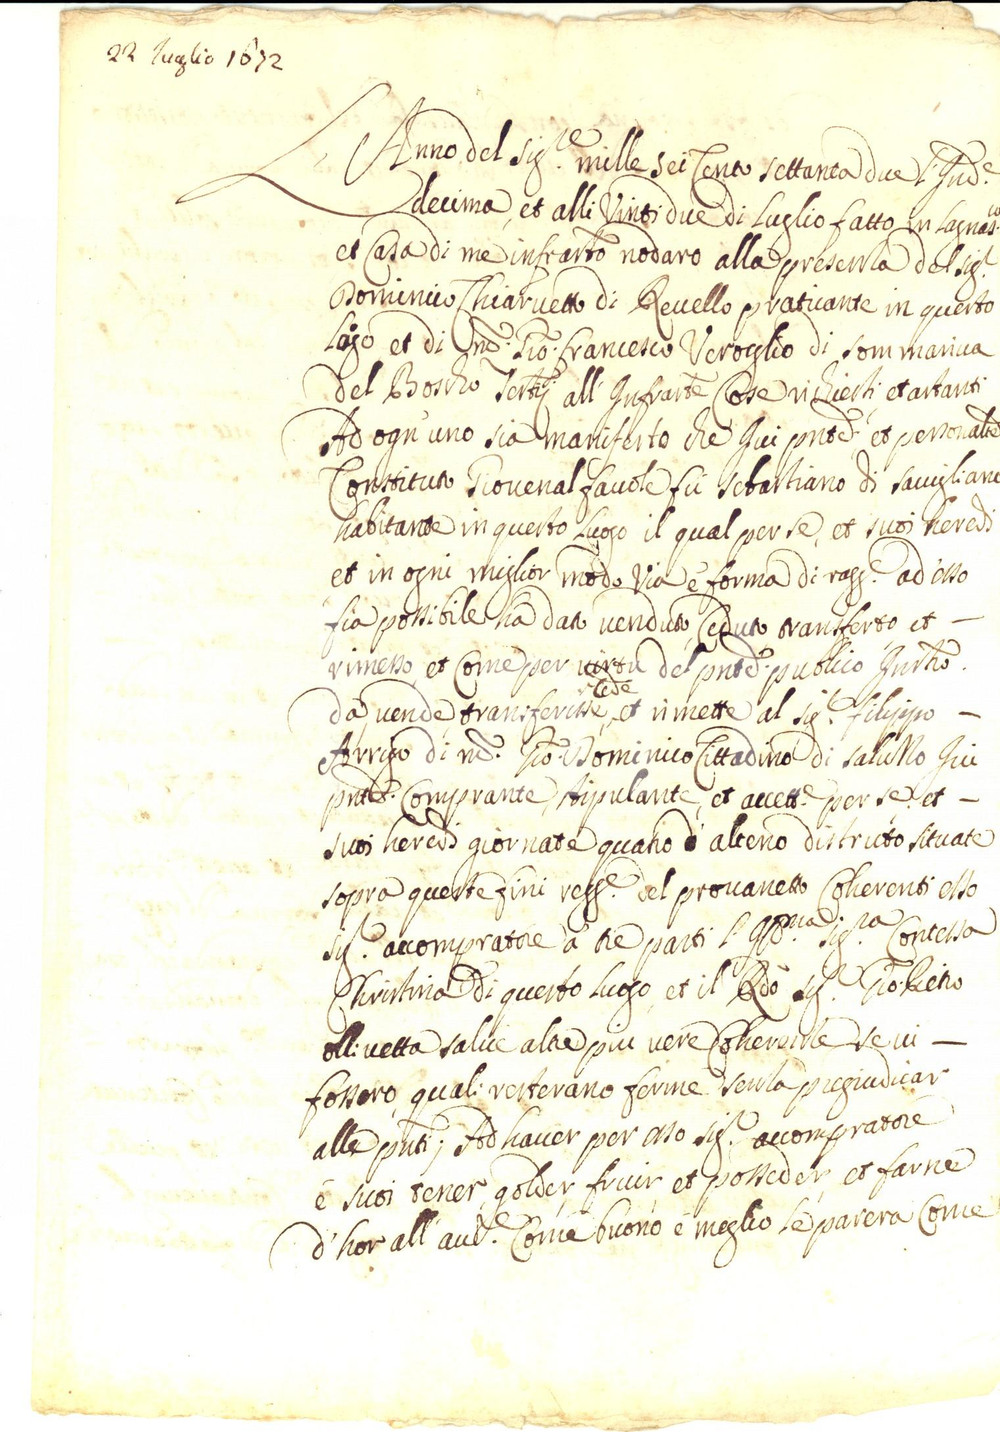 22 luglio 1672
L'Anno del Sig.re mille sei Cento settanta due l'Ind.e
decima, et alli Vinti due di Luglio fatto in Lagnas.co
et Casa di me infra.tto nodaro alla presenza del Sig.
Dominico Chiarvetto di Revello praticante in questo
Logo et di m.o Gio. Francesco Veroglio di Sommariva
del Boscho testij all' Infra.tte Cose richiesti, et astanti
Ad ogn'uno sia manifesto che qui pnte. et personalte
Constituto Giovenal favole fu Sebastiano di Savigliano
habitante in questo Luogo il qual per se, et suoi heredi
et in ogni miglior modo Via e forma di ragg.e ad esso
sia possibile ha dato venduto, ceduto transferto et —
rimesso, et Come per virtù del pnte. publico Instro.
da vende transferisse, cede et rimette al sig. filippo —
Arrigo di m.o Gio. Dominico Cittadino di Saluzzo qui
pnte. Comprante, stipulante, et accett.e per se, et —
suoi heredi giornate quatro d'alteno distruto situate
sopra queste fini regg.e del provanetto Coherenti esso
sig. accompratore a tre parti l'Ill.ma Sig.ra Contessa
Christina di questo Luogo, et il Rdo Sig. Gio. Pietro
ollivetta salve altre più vere Coherenze se vi —
fossero, quali resterano ferme senza pregiudicar
alle pnti; Ad haver per esso sig. accompratore
e suoi tener, golder, fruir et posseder, et farne
d'hor all' avv.e Come buono e meglio le parera Come